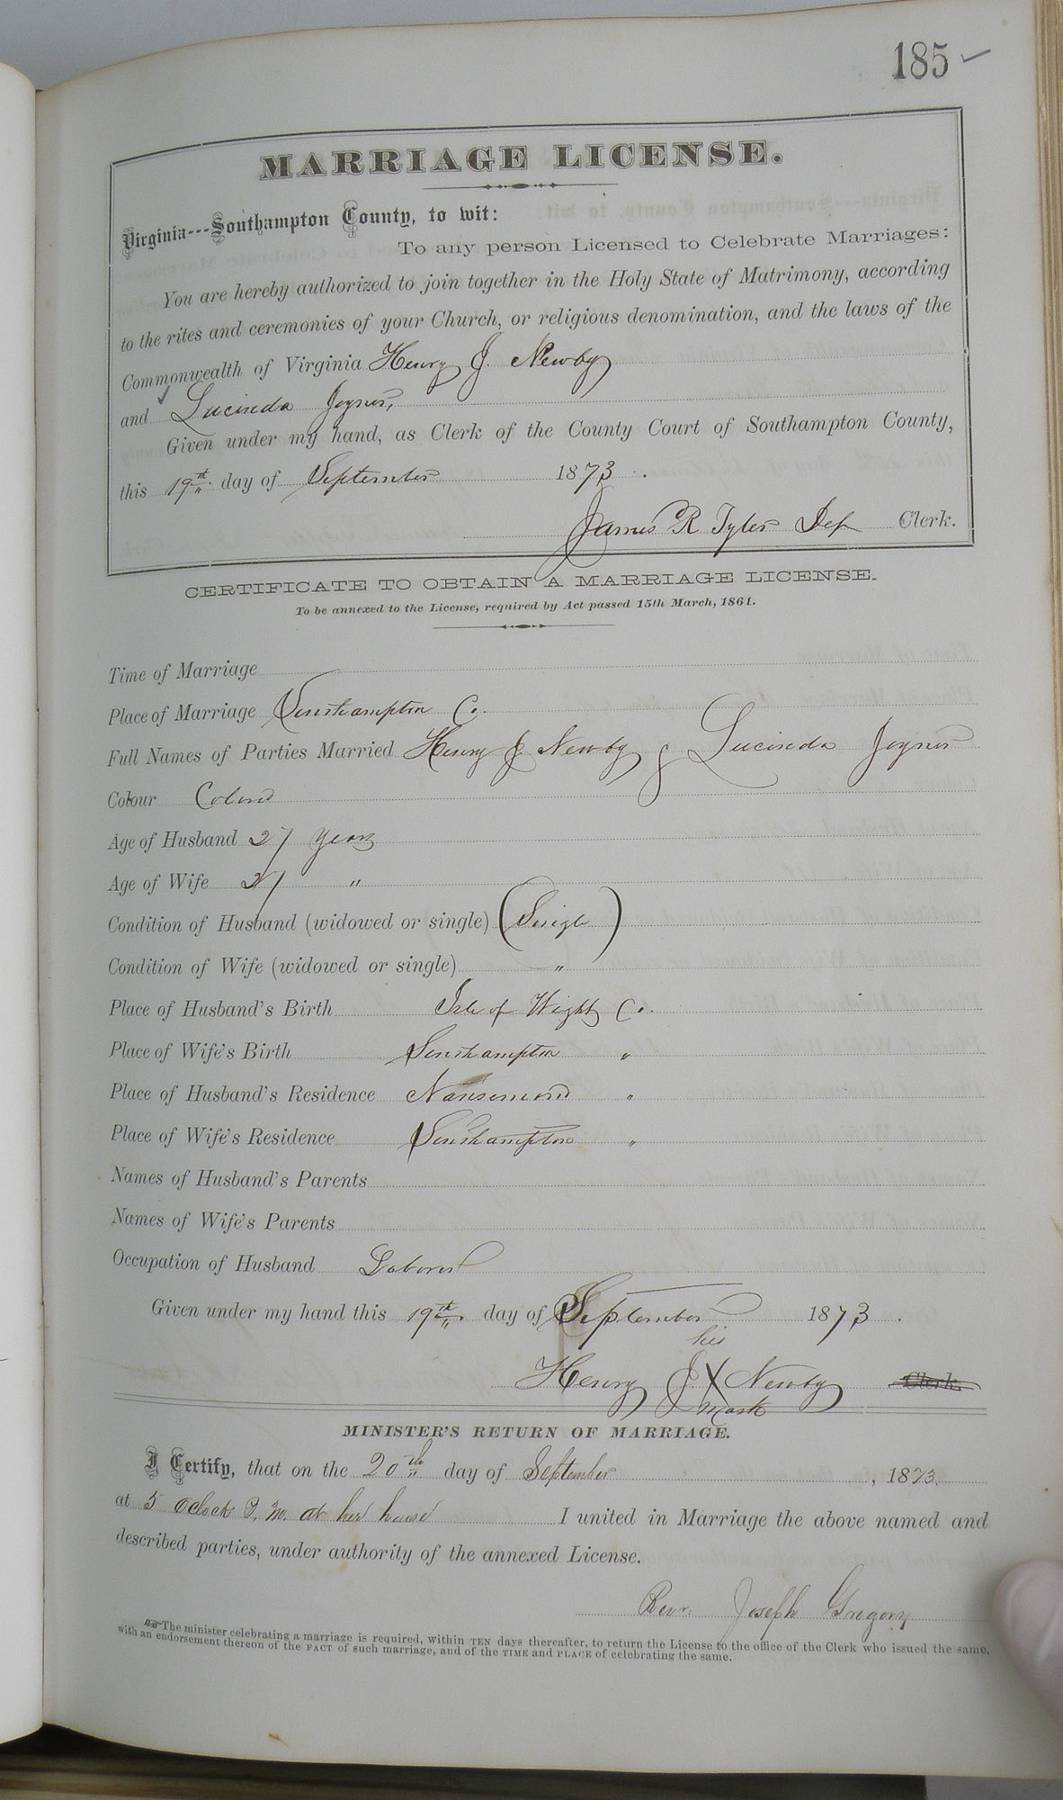 185
MARRIAGE LICENSE.
Virginia---Southampton County, to wit:
To any person Licensed to Celebrate Marriages:
You are hereby authorized to join together in the Holy State of Matrimony, according
to the rites and ceremonies of your Church, or religious denomination, and the laws of the
Commonwealth of Virginia Henry J. Newby
and Lucinda Joyner,
Given under my hand, as Clerk of the County Court of Southampton County,
this 19th day of September 1873.
James R Tyler Dep Clerk.
CERTIFICATE TO OBTAIN A MARRIAGE LICENSE.
To be annexed to the License, required by Act passed 15th March, 1861.
Time of Marriage
Place of Marriage Southampton Co.
Full Names of Parties Married Henry J Newby & Lucinda Joyner
Colour Colored
Age of Husband 27 years
Age of Wife 21 "
Condition of Husband (widowed or single) (Single)
Condition of Wife (widowed or single) "
Place of Husband's Birth Isle of Wight Co.
Place of Wife's Birth Southampton "
Place of Husband's Residence Nansemond "
Place of Wife's Residence Southampton "
Names of Husband's Parents
Names of Wife's Parents
Occupation of Husband Laborer
Given under my hand this 19th day of September 1873.
his
Henry J. X Newby Clerk.
mark
MINISTER'S RETURN OF MARRIAGE.
I Certify, that on the 20th day of September, 1873.
at 5 oclock P. M. at her house I united in Marriage the above named and
described parties, under authority of the annexed License.
Revr. Joseph Gregory
The minister celebrating a marriage is required, within TEN days thereafter, to return the License to the office of the Clerk who issued the same,
with an endorsement thereon of the FACT of such marriage, and of the TIME and PLACE of celebrating the same.